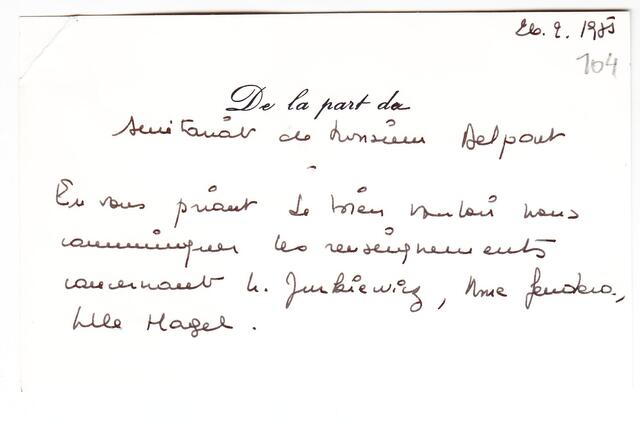 26.2.1985
104
De la part du
Secrétariat de Monsieur Delpont
En vous priant de bien vouloir nous
communiquer les renseignements
concernant M. Jurkiewicz, Mme
Mlle Hagel.